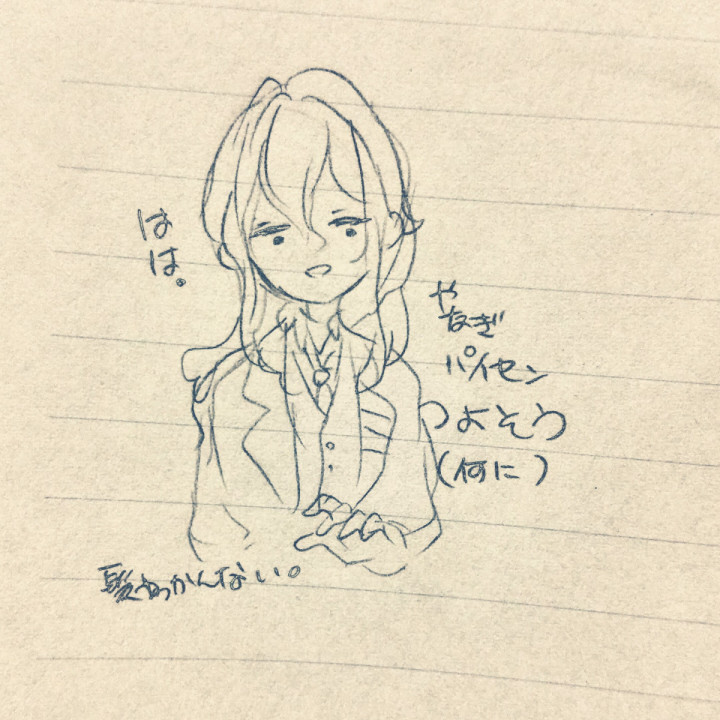 はは。
やなぎ
パイセン
つよそう
(何に)
髪わっかんない。